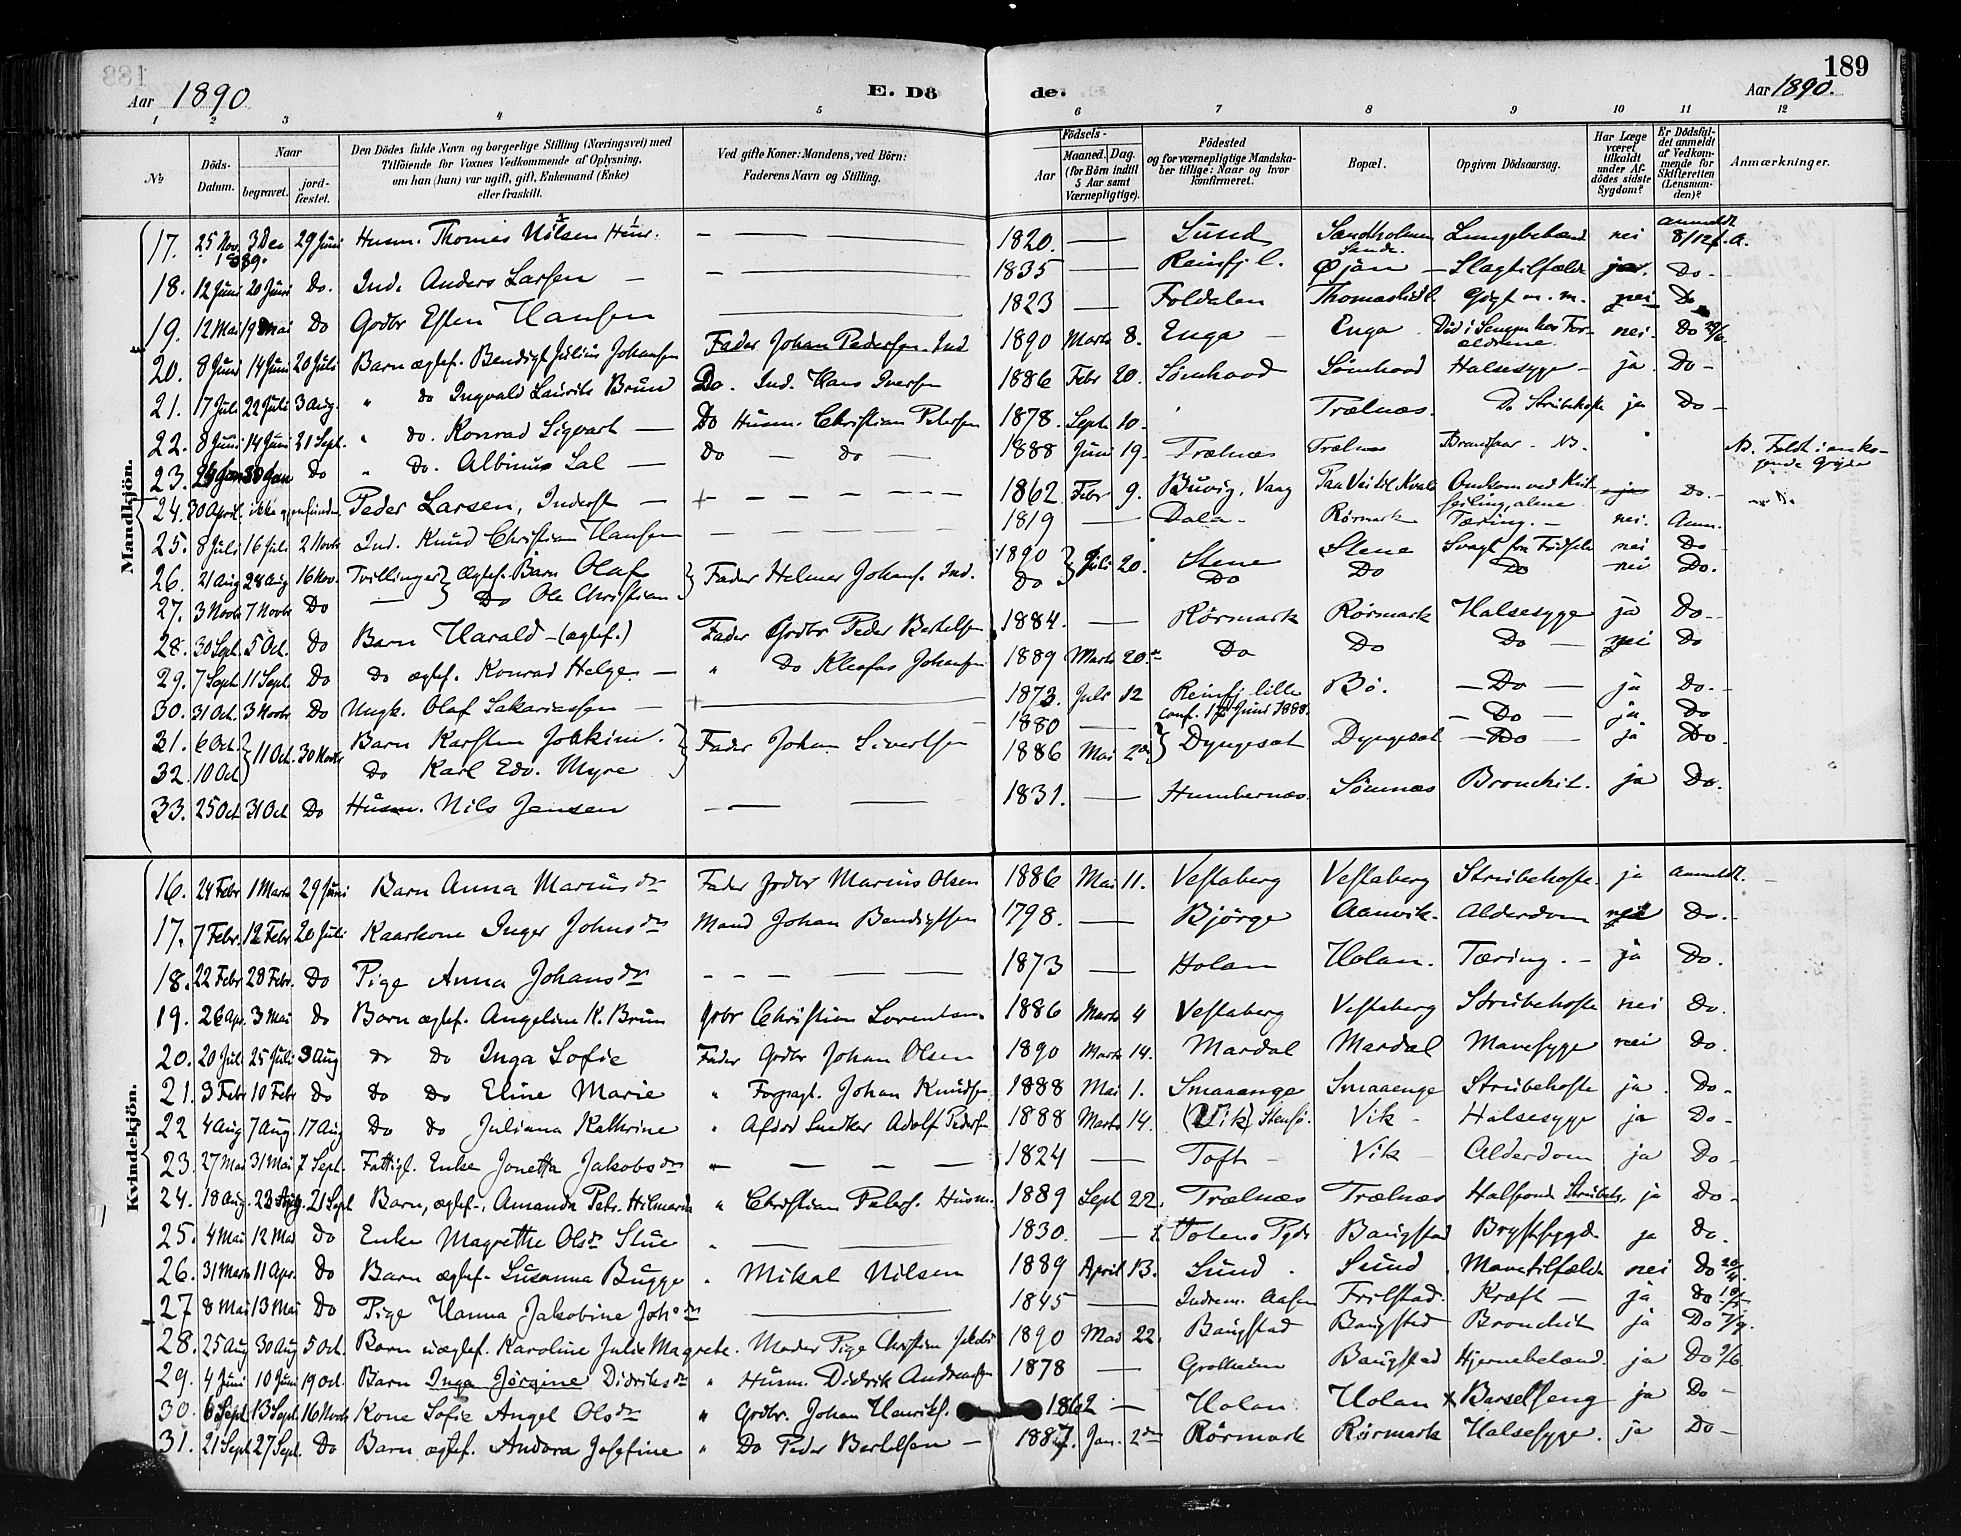 188
189
Aar 1890
E. Dö
de.
Aar 1890.
1 2 3 4 5 6 7 8 9 10 11 12
No
Döds-Datum.
Naar
begravet.
jord-fæstet.
Den Dödes fulde Navn og borgerlige Stilling (Næringsvei) med
Tilföiende for Voxnes Vedkommende af Oplysning,
om han (hun) var ugift, gift, Enkemand (Enke)
eller fraskilt.
Ved gifte Koner: Mandens, ved Börn:
Faderens Navn og Stilling.
Födsels-
Aar
Maaned. Dag.
(for Börn indtil
5 Aar samt
Værnepligtige).
Födested
og for værnepligtige Mandska-
ber tillige: Naar og hvor
konfirmeret.
Bopæl.
Opgiven Dödsaarsag.
Har Læge
været
tilkaldt
under Af-
dödes sidste
Sygdom?
Er Dödsfal-
det anmeldt
af Vedkom-
mende for
Skifteretten
(Lensman-
den)?
Anmærkninger.
Mandkjön.
17. 25 Nov. 1889. 3 Dec 29 Juni Husm. Thomas Nilsen — — — 1820. — Sund Sandholmen Lungebetænd nei anmeldt 8/12
18. 12 Juni 20 Juni Do. Ind. Anders Larsen — — — 1835 — Reinfj. l. Øjan — Slagtilfælde ja. Do-
19. 12 Mai 19 Mai Do Godbr Esten Hansen — 1823 — Foldalen Gigt m. m. nei Do
20. 8 Juni 14 Juni 20 Juli Barn ægtef. Bendigt Julius Johansen Fader Johan Pedersen Ind 1890 Marts 8. Enga — Enga Död i Sengen hos For-
ældrene. nei. Do
21. 17 Juli 22 Juli 3 Aug. " do Ingvald Laurits Brun Do. Ind. Hans Iversen 1886 Febr 20. Sömhovd Sömhovd Halsesyge — ja. Do-
22. 8 Juni 14 Juni 21 Sept. " do. Konrad Sigvart — Do Husm. Christian Petersen 1878. Sept 10. Trælnæs. Do Strubehoste ja Do-
23. Do " Do. Albinus — Do — do — 1888 Juni 19. Trælnæs Trælnæs Brandsaar — NB. NB. Faldt i en ko-
gende Gryde
24. 30 April. ikke gjenfunden Peder Larsen, Inderst — + — — — 1862 Febr 9. Buvig, Vaag Omkom ved
seiling, alene Do.-
25. 8 Juli 16 Juli 2 Novbr Ind. Knud Christian Hansen — — 1819 — Dala — Rörmark Tæring. — nei. Anm.
26. 21 Aug 28 Aug 16 Nov. Tvillinger } Ægtef. Barn Olaf } Fader Helmer Johans. Ind. 1890 } Juli 20. Stene Stene Svagt fra Födselen nei Do
27. 3 Novbr 7 Novbr Do — } Do Ole Christian Do Do Do Do nei Do.
28. 30 Sept. 5 Oct. Do Barn Harald — (ægtef.) Fader Godbr Peder Bertelsen 1884. — Rörmark Rörmark Halsesyge ja Do-
29. 7 Sept 11 Sept. Do do ægtef. Konrad Helge — " Do Kleofas Johansen 1889 Marts 20de Do Do Do — nei Do
30. 31 Oct. 3 Novbr Do Ungk. Olaf Sakariassen — + — 1873. Juli 12 Reinfj. lille
conf. Juni 1888. Bö. — Do — ja Do.-
31. 6 Oct. } 11 Oct. 30 Novbr Barn Karsten Joakim. } Fader Johan Sivertsen 1880 — } Dyngesat Dyngesat — Do — ja Do
32. 10 Oct Do Karl Edv. Myre 1886 Mai — Do — ja Do.
33. 25 Oct 31 Oct Do Husm. Nils Jensen — — 1831. — Humbernæs. Sömnæs Bronchit. ja Do.
Kvindekjön.
16. 24 Febr 1 Marts 29 Juni Barn Anna Mariusdr Fader Godbr Marius Olsen 1886 Mai 11. Vestaberg Vestaberg Strubehoste. ja Anmeldt.
17. 7 Febr. 12 Febr 20 Juli Kaarkone Inger Johnsdr Mand Johan Bendigtsen 1798. — Bjørge Aanvik. Alderdom nei Do.-
18. 22 Febr 28 Febr. Do Pige Anna Johansdr — — — 1873 — Holan Holan. Tæring. — ja Do.
19. 26 Apr. 3 Mai Do Barn ægtef. Angeline K. Brun Gdbr Christian Lorentsen. 1886 Marts 4 Vestaberg Vestaberg Strubehoste nei Do.
20. 20 Juli 25 Juli 3 Aug do do Inga Sofie Fader Godbr Johan Olsen 1890 Marts 14. Mardal Mardal Mavesyge nei Do.
21. 3 Febr 10 Febr Do do Do Eline Marie " Johan Knudsen 1888 Mai 1. Smaaenge Smaaenge Strubehoste ja. Do-
22 4 Aug 7 Aug. 17 Aug Do do Juliana Kathrine " Afdöd Snedker Adolf Peders 1888 Marts 14. (Vik) Vik — Halsesyge ja Do-
23. 27 Mai 31 Mai 7 Sept. Fattigl. Enke Jonetta Jakobsdr — — — 1824 — Toft — Vik — Alderdom ja Do-
24. 18 Aug. 23 Aug. 21 Sept Barn, ægtef., Amanda Petr. Hilmarda " Christian Peters. Husm. 1889 Sept 22. Trælnæs Trælnæs Halsonde Strubeh. ja Do-
25. 4 Mai 12 Mai Do Enke Magrethe Olsdr Stue — — 1830. — Baugstad Brystsyge ja Do.
26. 31 Marts 11 Apr. Do Barn ægtef. Susanna Bugge " Mikal Nilsen 1889 April 13. Sund Sund Mavetilfælde nei Do 20/4.
27 8 Mai 13 Mai Do Pige Hanna Jakobine Johsdr — 1845 — Indrem. Aasen Frilstad. Kræft — ja Do
28. 25 Aug 30 Aug 5 Oct. Barn uægtef. Karoline Julie Magrete. Moder Pige Christian Jakobs 1890 Mai 22. Baugstad Baugstad Bronchit ja Do 7/9.
29. 4 Juni 10 Juni 19 Oct. Barn Inga Jörgine Didriksdr " Husm. Didrik Andreassen 1878 — Grotheim Baugstad Hjernebetænd. ja Do 9/6
30. 6 Sept. 13 Sept. 16 Novbr Kone Sofie Angel Olsdr " Godbr. Johan Henriks. 1862 — Holan Holan × Barselseng ja Do-
31. 21 Sept 27 Sept. Do Barn ægtef. Andora Josefine " Do Peder Bertelsen — 1887. Jan. 2den Rörmark Rörmark Halsesyge. ja Do-